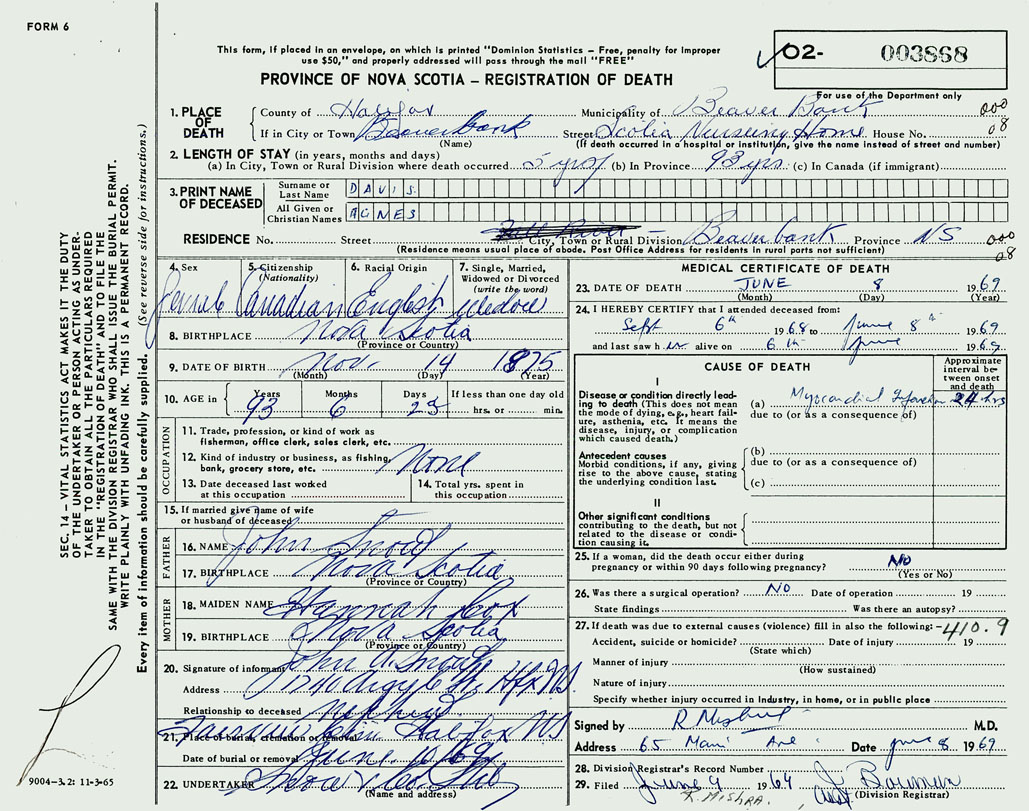 FORM 6
This form, if placed in an envelope, on which is printed "Dominion Statistics – Free, penalty for improper
use $50," and properly addressed will pass through the mail "FREE"
PROVINCE OF NOVA SCOTIA – REGISTRATION OF DEATH
✓02- 003868
For use of the Department only
1. PLACE OF DEATH
County of Halifax Municipality of Beaver Bank 000
If in City or Town Beaverbank Street Scotia Nursing Home House No. 08
(Name) (If death occurred in a hospital or institution, give the name instead of street and number)
2. LENGTH OF STAY (in years, months and days)
(a) In City, Town or Rural Division where death occurred 5 yrs (b) In Province 93 yrs. (c) In Canada (if immigrant)
3. PRINT NAME OF DECEASED
Surname or Last Name DAVIS
All Given or Christian Names AGNES
RESIDENCE No. Street City, Town or Rural Division – Beaverbank Province NS 000
(Residence means usual place of abode. Post Office Address for residents in rural parts not sufficient) 08
4. Sex 5. Citizenship (Nationality) 6. Racial Origin 7. Single, Married, Widowed or Divorced (write the word)
Female Canadian English widow
8. BIRTHPLACE Nova Scotia
(Province or Country)
9. DATE OF BIRTH Nov. 14 1875
(Month) (Day) (Year)
10. AGE in Years Months Days If less than one day old
93 6 25 hrs. or min.
OCCUPATION
11. Trade, profession, or kind of work as
fisherman, office clerk, sales clerk, etc.
12. Kind of industry or business, as fishing,
bank, grocery store, etc. None
13. Date deceased last worked at this occupation
14. Total yrs. spent in this occupation
15. If married give name of wife
or husband of deceased
FATHER
16. NAME John Snow
17. BIRTHPLACE Nova Scotia
(Province or Country)
MOTHER
18. MAIDEN NAME Hannah Cox
19. BIRTHPLACE Nova Scotia
(Province or Country)
20. Signature of informant John A Snow
Address Argyle St, Hfx NS.
Relationship to deceased nephew
21. Place of burial, cremation or removal Halifax NS
Date of burial or removal June 69
22. UNDERTAKER Snow & Co Ltd
(Name and address)
MEDICAL CERTIFICATE OF DEATH
23. DATE OF DEATH JUNE 8 1969
(Month) (Day) (Year)
24. I HEREBY CERTIFY that I attended deceased from:
Sept 6th 1968 to June 8th 1969
and last saw her alive on 6th June 1969.
CAUSE OF DEATH
Approximate interval between onset and death
I
Disease or condition directly leading to death (This does not mean the mode of dying, e.g., heart failure, asthenia, etc. It means the disease, injury, or complication which caused death.)
(a) Myocardial Infarction 24 hrs
due to (or as a consequence of)
Antecedent causes
Morbid conditions, if any, giving rise to the above cause, stating the underlying condition last.
(b)
due to (or as a consequence of)
(c)
II
Other significant conditions
contributing to the death, but not related to the disease or condition causing it.
25. If a woman, did the death occur either during
pregnancy or within 90 days following pregnancy? NO
(Yes or No)
26. Was there a surgical operation? NO Date of operation 19
State findings Was there an autopsy?
27. If death was due to external causes (violence) fill in also the following: – 410.9
Accident, suicide or homicide? Date of injury 19
(State which)
Manner of injury
(How sustained)
Nature of injury
Specify whether injury occurred in Industry, in home, or in public place
Signed by R Mishra M.D.
Address 65 Main Ave Date June 8 1969
28. Division Registrar's Record Number
29. Filed June 9 1969 J Bowman
R. MISHRA. (Division Registrar)
SEC. 14 – VITAL STATISTICS ACT MAKES IT THE DUTY
OF THE UNDERTAKER OR PERSON ACTING AS UNDER-
TAKER TO OBTAIN ALL THE PARTICULARS REQUIRED
IN THE "REGISTRATION OF DEATH" AND TO FILE THE
SAME WITH THE DIVISION REGISTRAR WHO SHALL ISSUE THE BURIAL PERMIT.
WRITE PLAINLY WITH UNFADING INK. THIS IS A PERMANENT RECORD.
Every item of information should be carefully supplied. (See reverse side for instructions.)
9004-3.2: 11-3-65